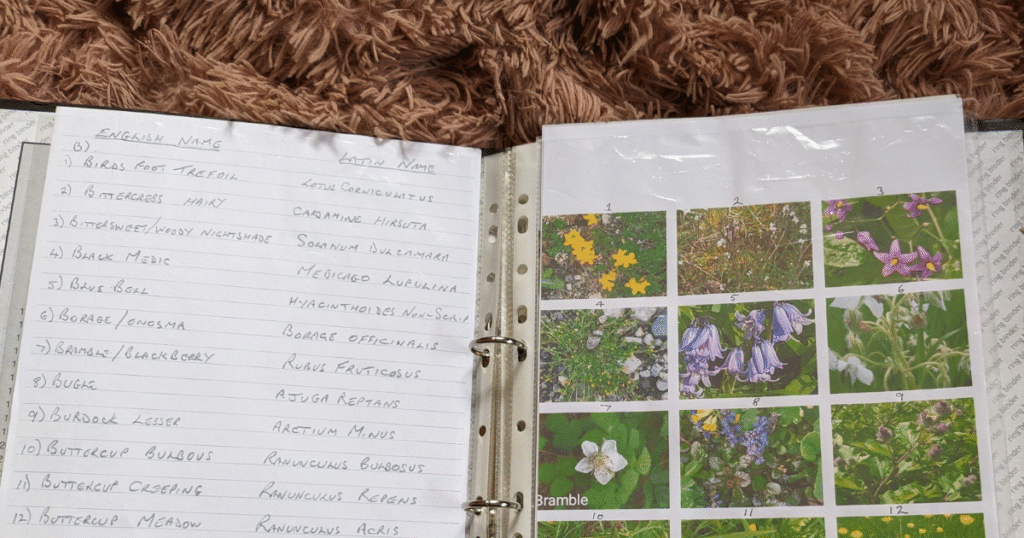 ENGLISH NAME LATIN NAME
B).
1) BIRDS FOOT TREFOIL LOTUS CORNICULATUS
2) BITTERCRESS HAIRY CARDAMINE HIRSUTA
3) BITTERSWEET/WOODY NIGHTSHADE SOLANUM DULCAMARA
4) BLACK MEDIC MEDICAGO LUPULINA
5) BLUE BELL HYACINTHOIDES NON-SCRIP
6) BORAGE/ONOSMA BORAGE OFFICINALIS
7) BRAMBLE/BLACKBERRY RUBUS FRUTICOSUS
8) BUGLE AJUGA REPTANS
9) BURDOCK LESSER ARCTIUM MINUS
10) BUTTERCUP BULBOUS RANUNCULUS BULBOSUS
11) BUTTERCUP CREEPING RANUNCULUS REPENS
12) BUTTERCUP MEADOW RANUNCULUS ACRIS
1 2 3
4 5 6
7 8 9
Bramble
10 11 12
ring binder